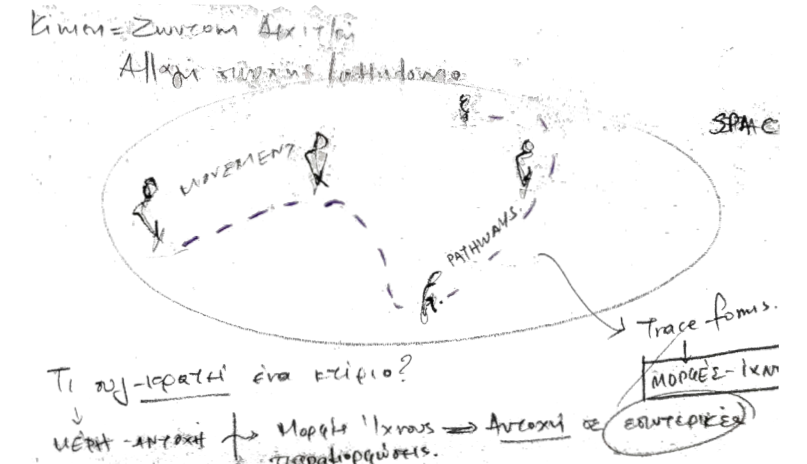 Κίνηση = Ζωντανή Αρχιτεκτ
Αλλαγή συνεχής
SPAC
MOVEMENT
PATHWAYS
Trace forms.
ΜΟΡΦΕΣ - ΙΧΝ
Τι συγ-κρατεί ένα κτίριο?
ΜΕΡΗ - ΑΝΤΟΧΗ → Μορφές Ίχνους ⇒ Αντοχή σε εσωτερικές
παραμορφώσεις.